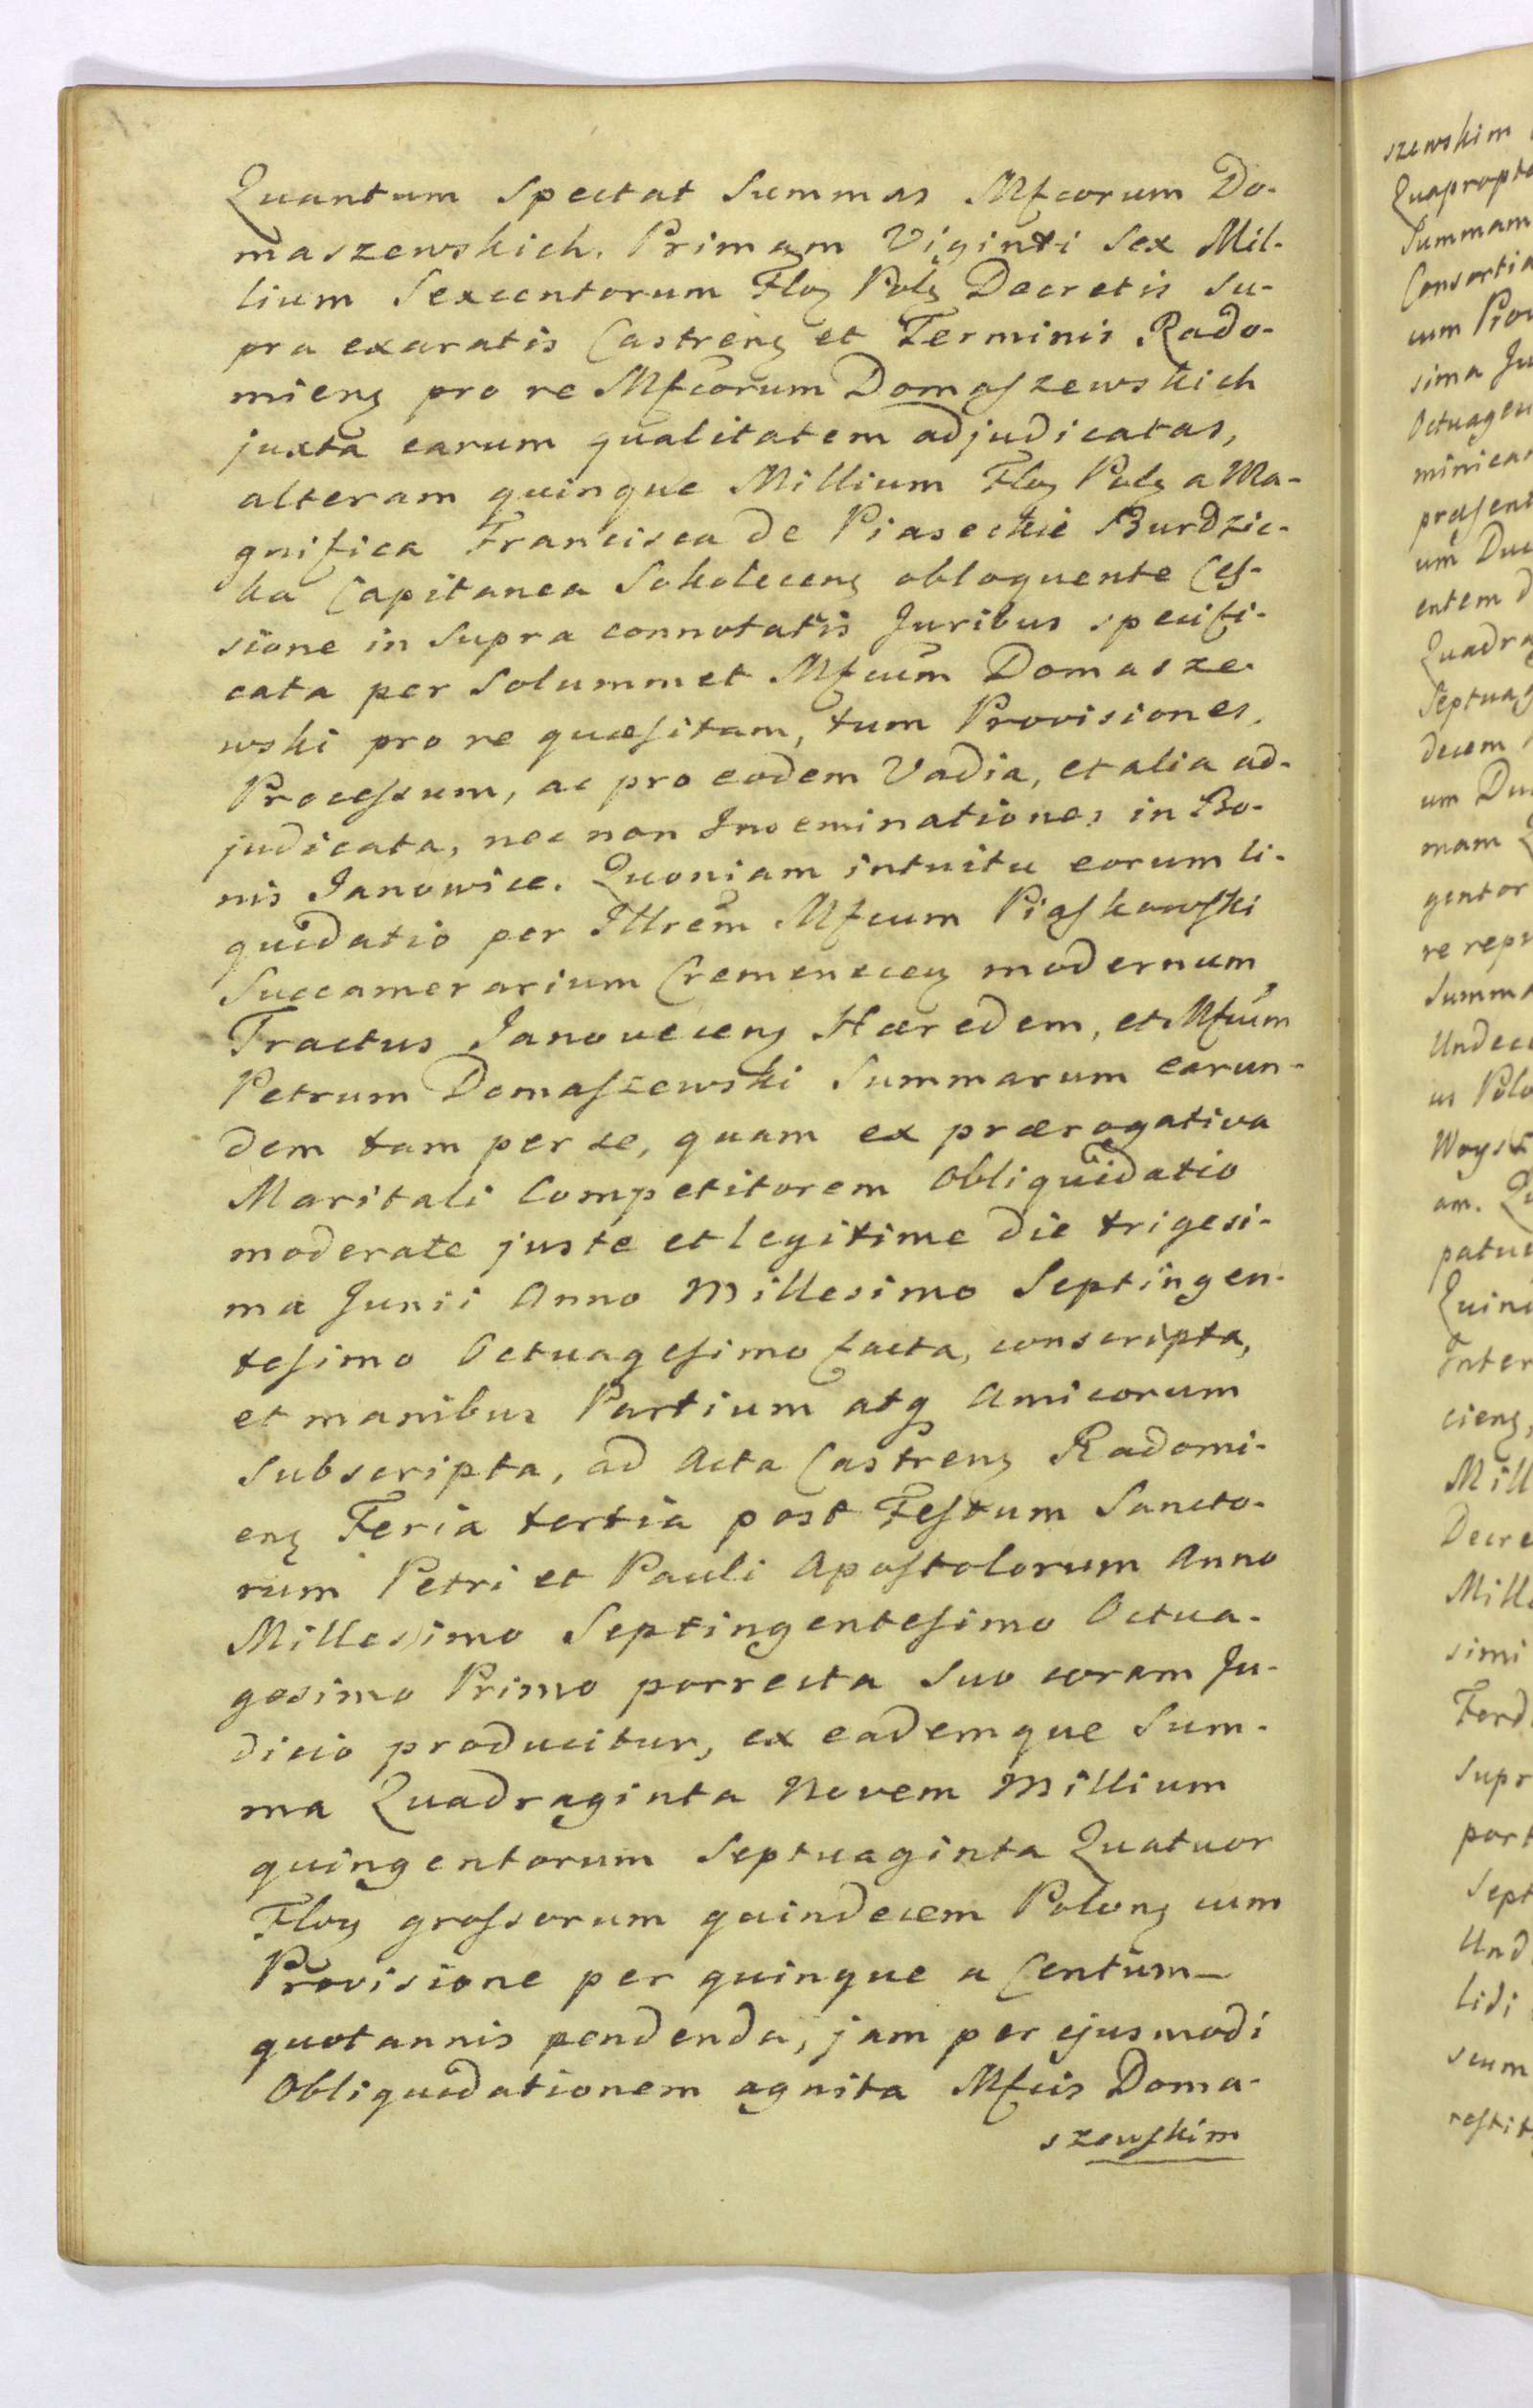 Quantum Spectat Summas Mfcorum Do-
maszewskich. Primam Viginti Sex Mil-
lium Sexcentorum Floꝝ Polꝫ Decretis Su-
pra exaratis Castrenꝫ et Terminis Rado-
mienꝫ pro re Mfcorum Domaſzewskich
juxta earum qualitatem adjudicatas,
alteram quinque Millium Floꝝ Polꝫ a Ma-
gnifica Francisca de Piaseckie Burdzic-
ka Capitanea Sokolecenꝫ obloquente Ceſ-
sione in Supra connotatis Juribus specifi-
cata per Solummet Mfcum Domasze-
wski pro re quæſitam, tum Provisiones,
Proceſsum, ac pro eodem Vadia, et alia ad-
judicata, nec non Inseminationes in Bo-
nis Janowice. Quoniam intuitu eorum li-
quidatio per Illrem Mfcum Piaſkowſki
Succamerarium Cremenecenꝫ modernum
Tractus Janovecenꝫ Hæredem, et Mfcum
Petrum Domaſzewski Summarum earun-
dem tam per se, quam ex prærogativa
Maritali Competitorem Obliquidatio
moderate juste et legitime die trigesi-
ma Junii Anno Millesimo Septingen-
teſimo Octuageſimo facta, conscripta,
et manibus Partium atqꝫ Amicorum
Subscripta, ad Acta Castrenꝫ Radomi-
enꝫ Feria tertia post Feſtum Sancto-
rum Petri et Pauli Apoſtolorum Anno
Millesimo Septingenteſimo Octua-
gesimo Primo porrecta Suo coram Ju-
dicio producitur, ex eademque Sum-
ma Quadraginta Novem Millium
quingentorum Septuaginta Quatuor
Floꝝ groſsorum quindecem Polonꝫ cum
Provisione per quinque a Centum
quotannis pendenda, jam per ejusmodi
Obliquidationem agnita Mfcis Doma-
szewſkim
szewskim
Quapropt
Summam
Consortia
cum Prov
sima Ju
Octuagen
minicar
præsent
um Duc
entem d
Quadra
Septuag
decem
um Du
mam
gentor
re rep
Summa
Undec
is Polo
am. Qu
patu
Quin
Inter
cienꝫ,
Mill
Decre
Mille
simi
Ferd
Supr
port
Sept
Und
lidi
scum
reſtit